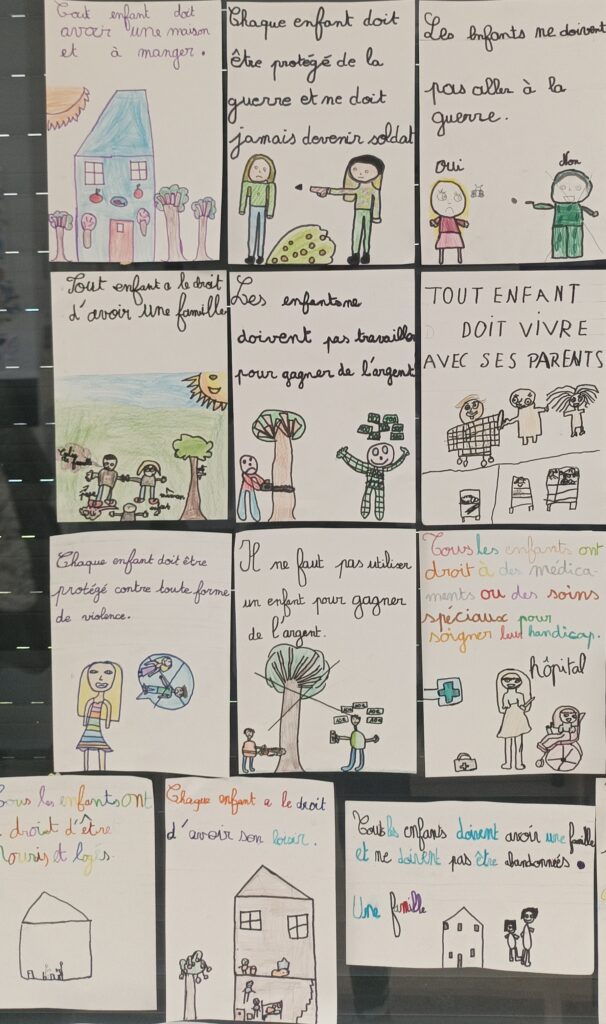 Tout enfant doit
avoir une maison
et à manger.
Chaque enfant doit
être protégé de la
guerre et ne doit
jamais devenir soldat
Les enfants ne doivent
pas aller à la
guerre.
Oui
Non
Tout enfant a le droit
d'avoir une famille
maman
enfant
Les enfants ne
doivent pas travailler
pour gagner de l'argent
TOUT ENFANT
DOIT VIVRE
AVEC SES PARENTS
Chaque enfant doit être
protégé contre toute forme
de violence.
Il ne faut pas utiliser
un enfant pour gagner
de l'argent.
Tous les enfants ont
droit à des médica-
ments ou des soins
spéciaux pour
soigner leur handicap.
hôpital
Tous les enfants ont
droit d'être
nourris et logés.
Chaque enfant a le droit
d'avoir son loisir.
Tous les enfants doivent avoir une famille
et ne doivent pas être abandonnés.
Une famille